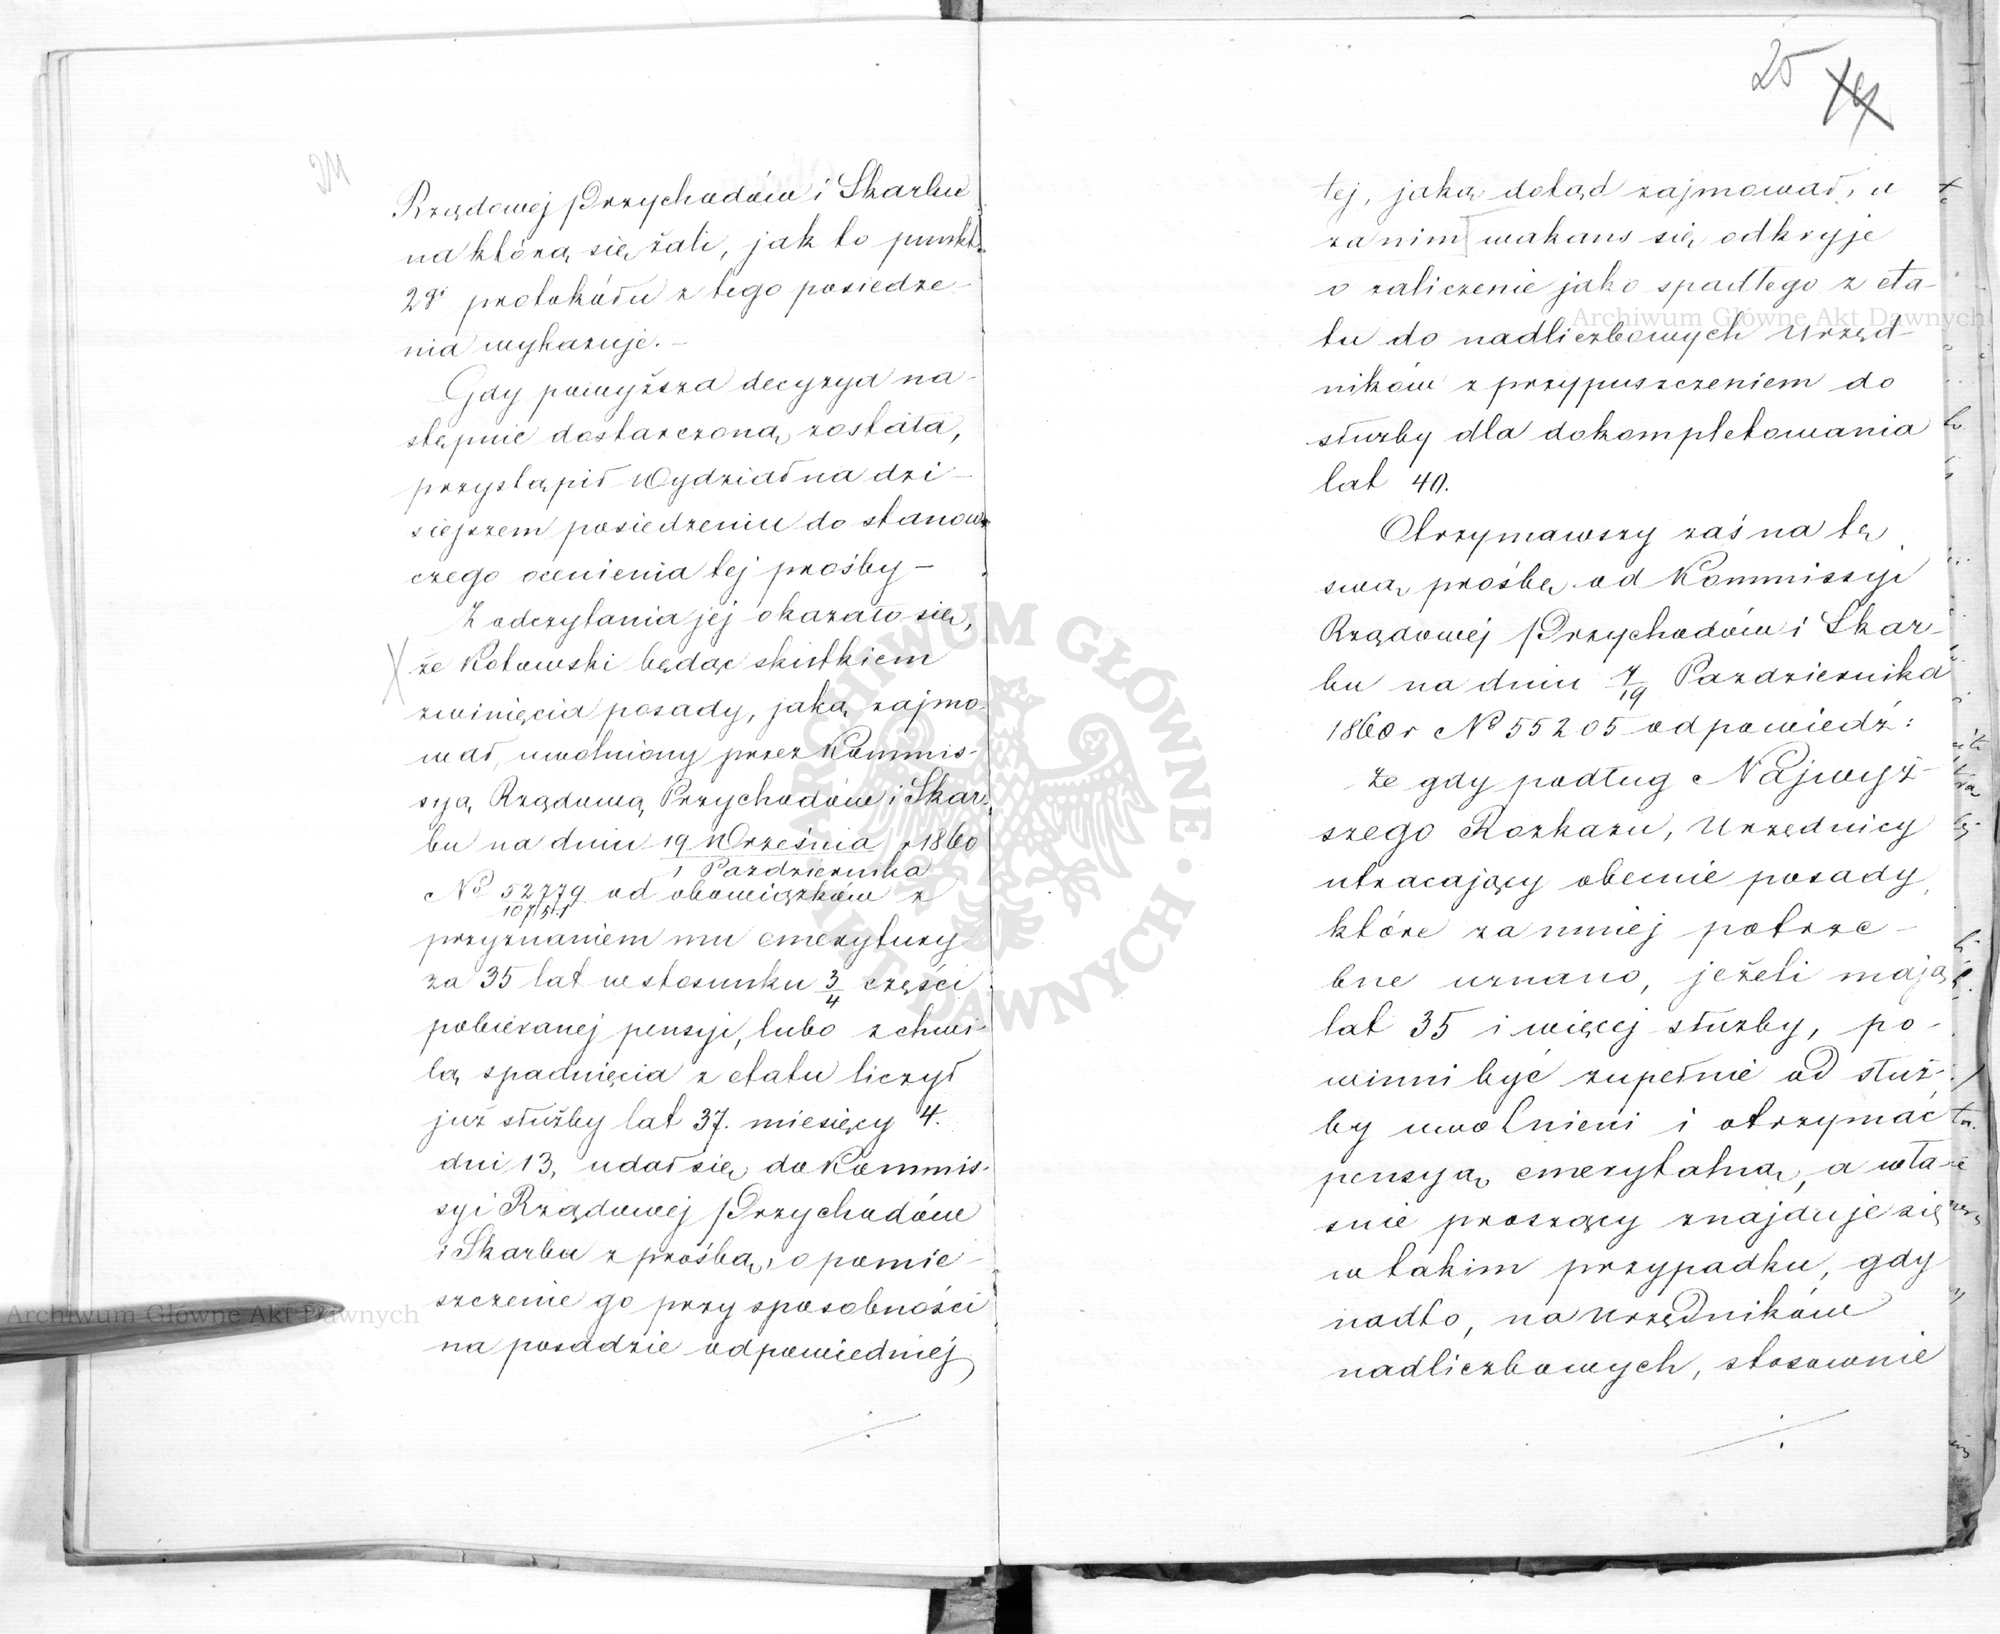 Rządowej Przychodów i Skarbu
na którą się żali, jak to punkt
29i protokółu z tego posiedze-
nia wykazuje.-
Gdy powyższa decyzya na-
stępnie dostarczoną została,
przystąpił Wydział na dzi-
siejszem posiedzeniu do stanow-
czego ocenienia tej prośby -
Z odczytania jej okazało się,
że Kotowski będąc skutkiem
zwinięcia posady, jaką zajmo-
wał, uwolniony przez Kommis-
syą Rządową Przychodów i Skar-
bu na dniu 19 Września r 1860
1 Pazdziernika
No 52779 od obowiązków z
10751
przyznaniem mu emerytury
za 35 lat w stosunku 3/4 części
pobieranej pensyi, lubo z chwi-
lą spadnięcia z etatu liczył
już służby lat 37. miesięcy 4.
dni 13, udał się do Kommis-
syi Rządowej Przychodów
i Skarbu z prośbą, o pomie-
szczenie go przy sposobności
na posadzie odpowiedniej
25
tej, jaką dotąd zajmował, a
zanim wakans się odkryje
o zaliczenie jako spadłego z eta-
tu do nadliczbowych Urzęd-
ników z przypuszczeniem do
służby dla dokompletowania
lat 40.
Otrzymawszy zaś na tę
swą prośbę od Kommissyi
Rządowej Przychodów i Skar-
bu na dniu 7/19 Pazdziernika
1860 r No 55205 odpowiedź:
że gdy podług Najwyż-
szego Rozkazu, Urzędnicy
utracający obecnie posady,
które za mniej potrze-
bne uznano, jeżeli mają
lat 35 i więcej służby, po-
winni być zupełnie od służ-
by uwolnieni i otrzymać
pensyą emerytalną, a wła-
śnie proszący znajduje się
w takim przypadku, gdy
nadto, na Urzędników
nadliczbowych, stosownie
Archiwum Główne Akt Dawnych
Archiwum Główne Akt Dawnych
ARCHIWUM GŁÓWNE AKT DAWNYCH